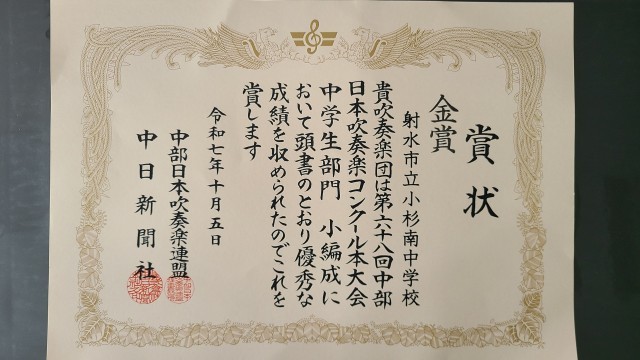 賞状
金賞
射水市立小杉南中学校
貴吹奏楽団は第六十八回中部
日本吹奏楽コンクール本大会
中学生部門 小編成に
おいて頭書のとおり優秀な
成績を収められたのでこれを
賞します
令和七年十月五日
中部日本吹奏楽連盟
中日新聞社